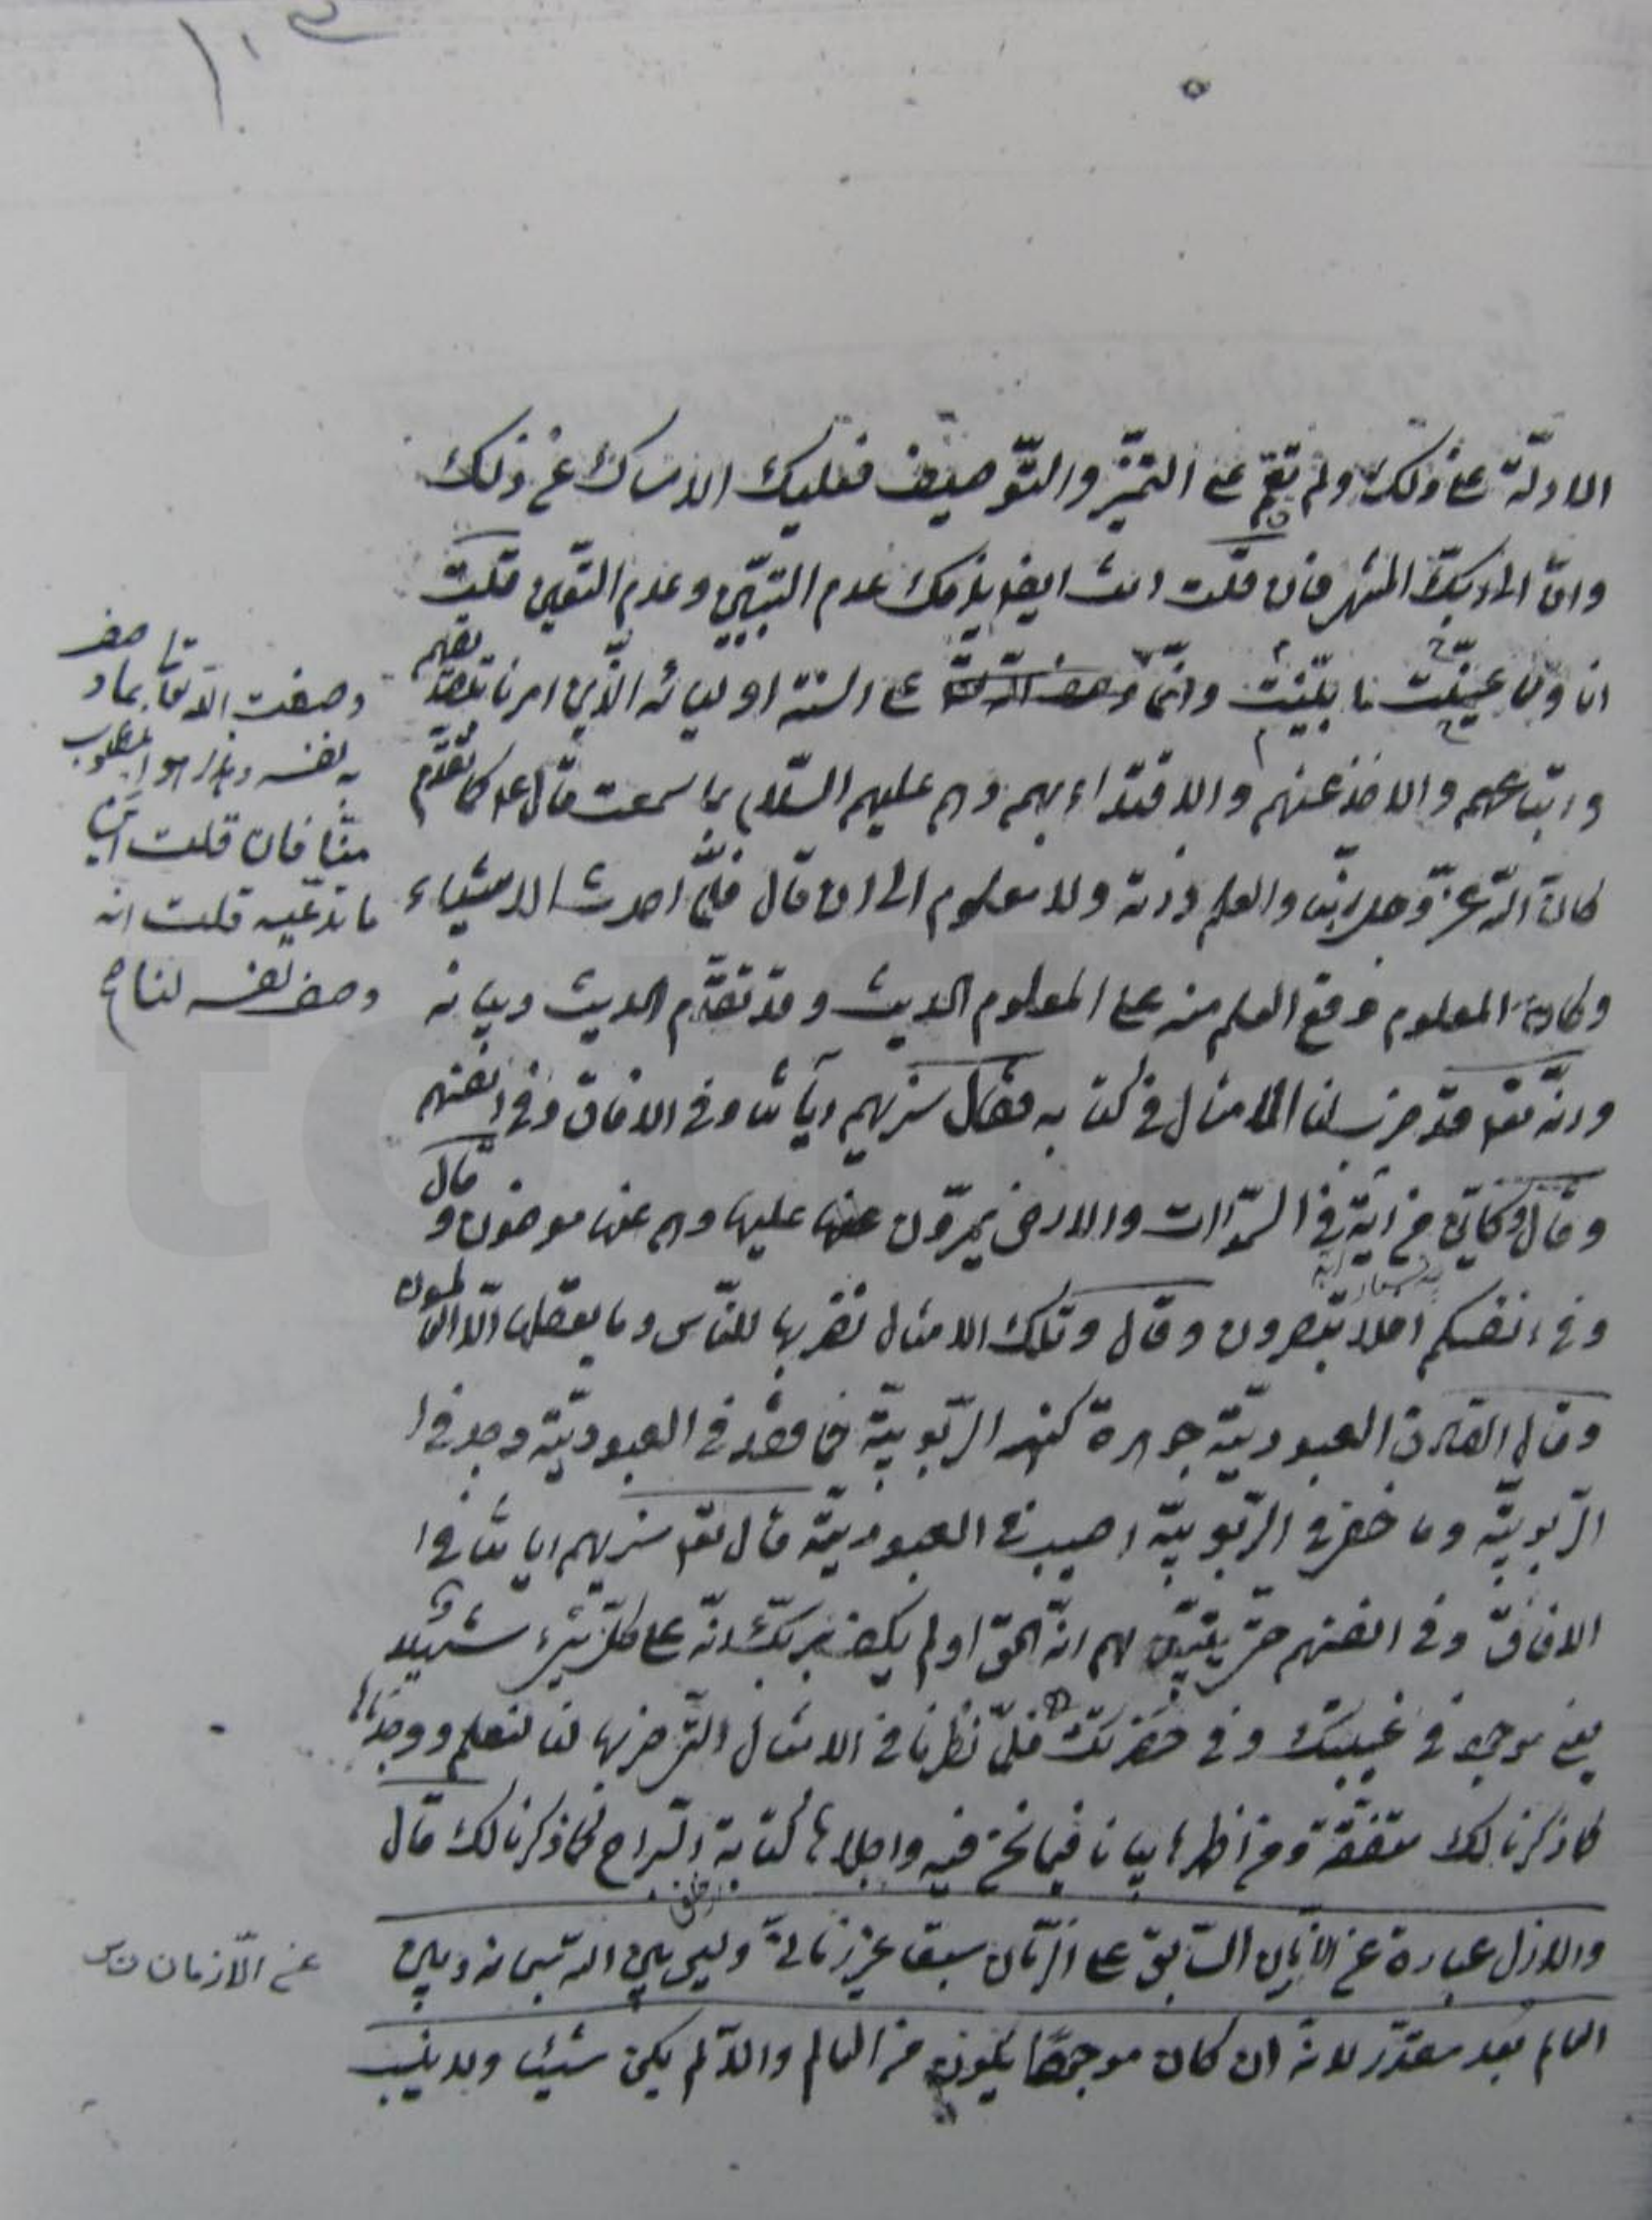 الادلّة على ذلك ولم تقم على التميّز والتّوصيف فعليك الامساك عن ذلك
وانّ الى ربّك المنتهى فان قلت انت ايضا يلزمك عدم التبيّن وعدم التعيين قلت
انا وان عيّنت ما بيّنت وانّما على السنة اوليائه الّذين امرنا
واتباعهم والاخذ عنهم والاقتداء بهم وهم عليهم السّلام بما سمعت قال كما تقدّم
كان اللّه عزّ وجل ربّنا والعلم ذاته ولا معلوم الى ان قال فلمّا احدث الاشياء
وكان المعلوم وقع العلم منه على المعلوم الحديث وقد تقدّم الحديث وبيانه
وانّه تعالى قد ضرب لنا الامثال فى كتابه فقال سنريهم آياتنا فى الافاق وفى انفسهم
وقال وكايّن من آية فى السّموات والارض يمرّون عليها وهم عنها معرضون وقال
وفى انفسكم افلا تبصرون وقال وتلك الامثال نضربها للنّاس وما يعقلها الّا العالمون
وقال الصادق العبوديّة جوهرة كنهها الرّبوبيّة فما فقد فى العبوديّة وجد فى
الرّبوبيّة وما خفى فى الرّبوبيّة اصيب فى العبوديّة قال تعالى سنريهم اياتنا فى
الافاق وفى انفسهم حتّى يتبيّن لهم انّه الحق اولم يكف بربّك انّه على كلّ شىء شهيد
يعنى موجود فى غيبتك وفى حضرتك فلمّا نظرنا فى الامثال الّتى ضربها لنا لنعلم ووجدناها
كما ذكرنا لك متفقة ومن اظهرها بيانا فيما نحن فيه واجلاها كتابة السّراج كما ذكرنا لك قال
والازل عبارة عن الازمان السّابق على الزّمان سبقا غير زمانىّ وليس بين اللّه سبحانه وبين
العالم بعد مقدّر لانّه ان كان موجودا يكون من العالم والّا لم يكن شيئا ولا ينسب
وصفت اللّه تعالى بما وصف
به نفسه وهذا هو المطلوب
منّا فان قلت اين
ما تدّعيه قلت انه
وصف نفسه لنا
عن الّازمان